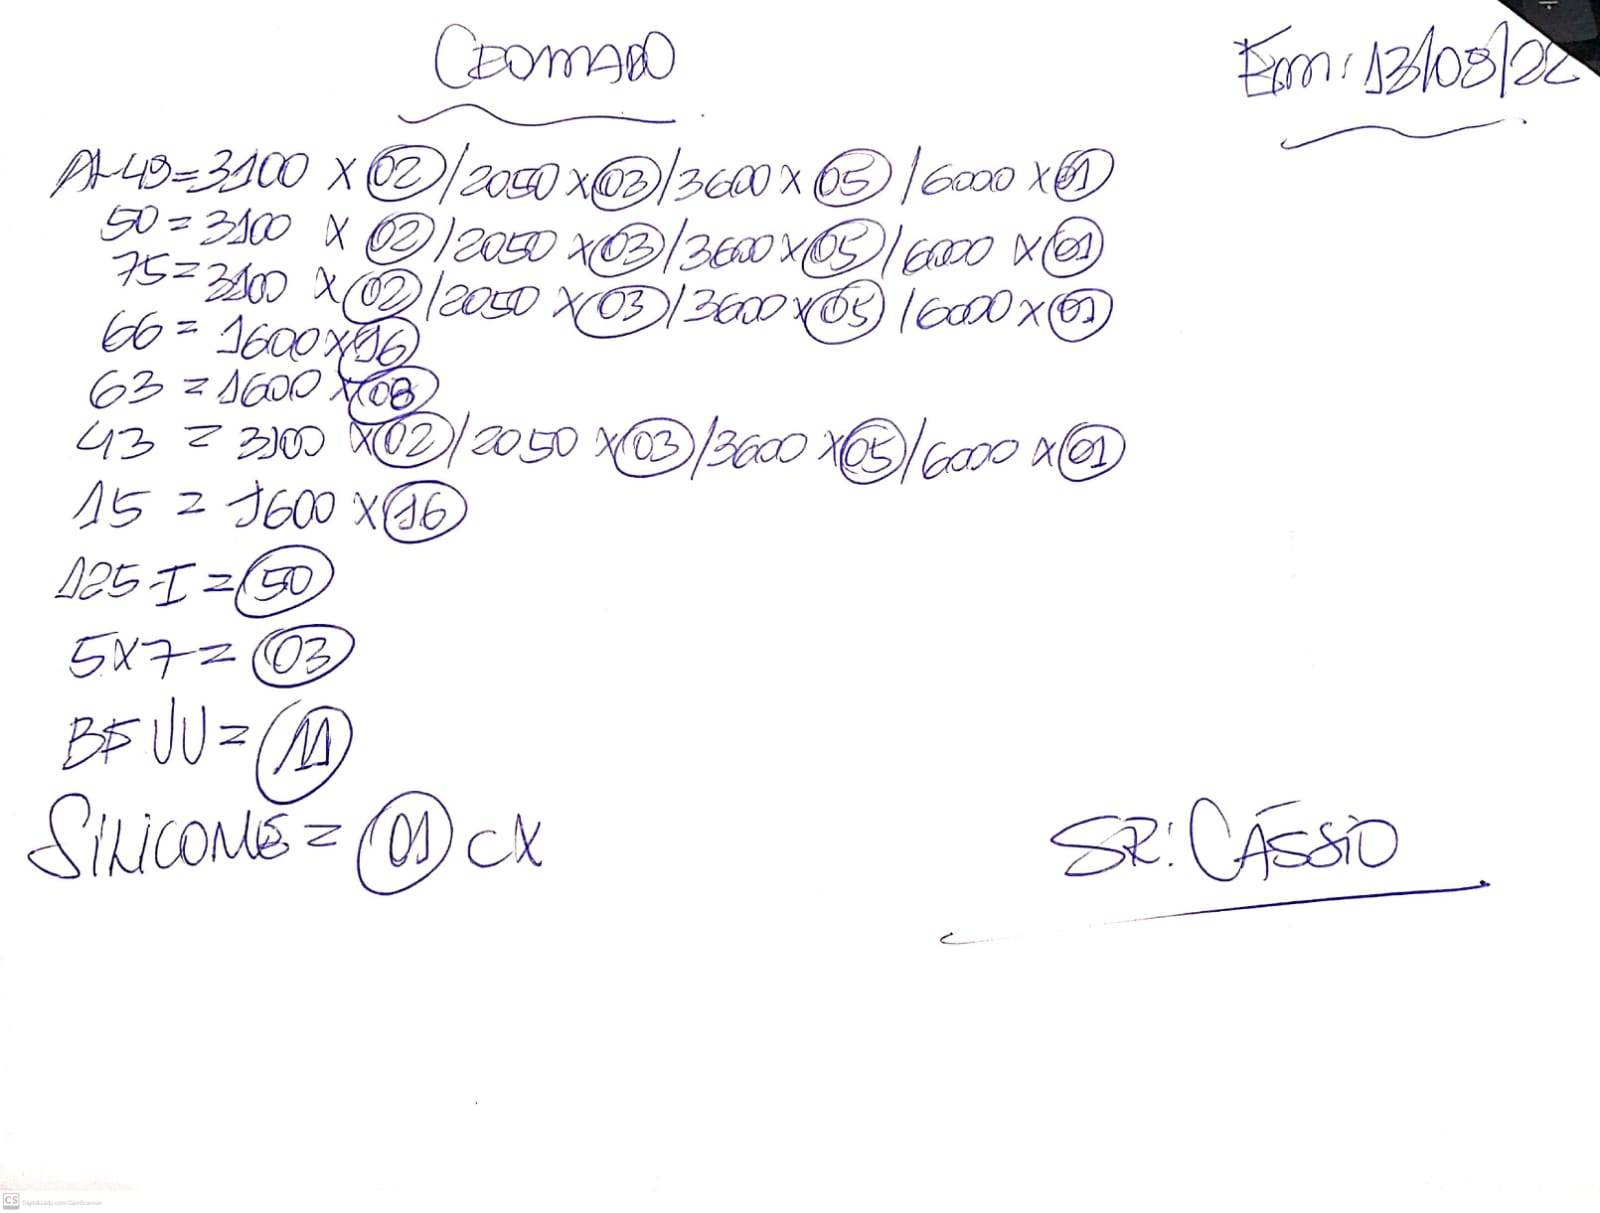 CROMADO
Em: 13/08/22
AL-48=3100 X 02/2050 X 03/3600 X 05/6000 X 01
50=3100 X 02/2050 X 03/3600 X 05/6000 X 01
75=3100 X 02/2050 X 03/3600 X 05/6000 X 01
66=1600 X 16
63=1600 X 08
43=3100 X 02/2050 X 03/3600 X 05/6000 X 01
15=1600 X 16
125-I=50
5X7=03
=11
SILICONE=01 CX
SR: CÁSSIO
CS Digitalizado com CamScanner